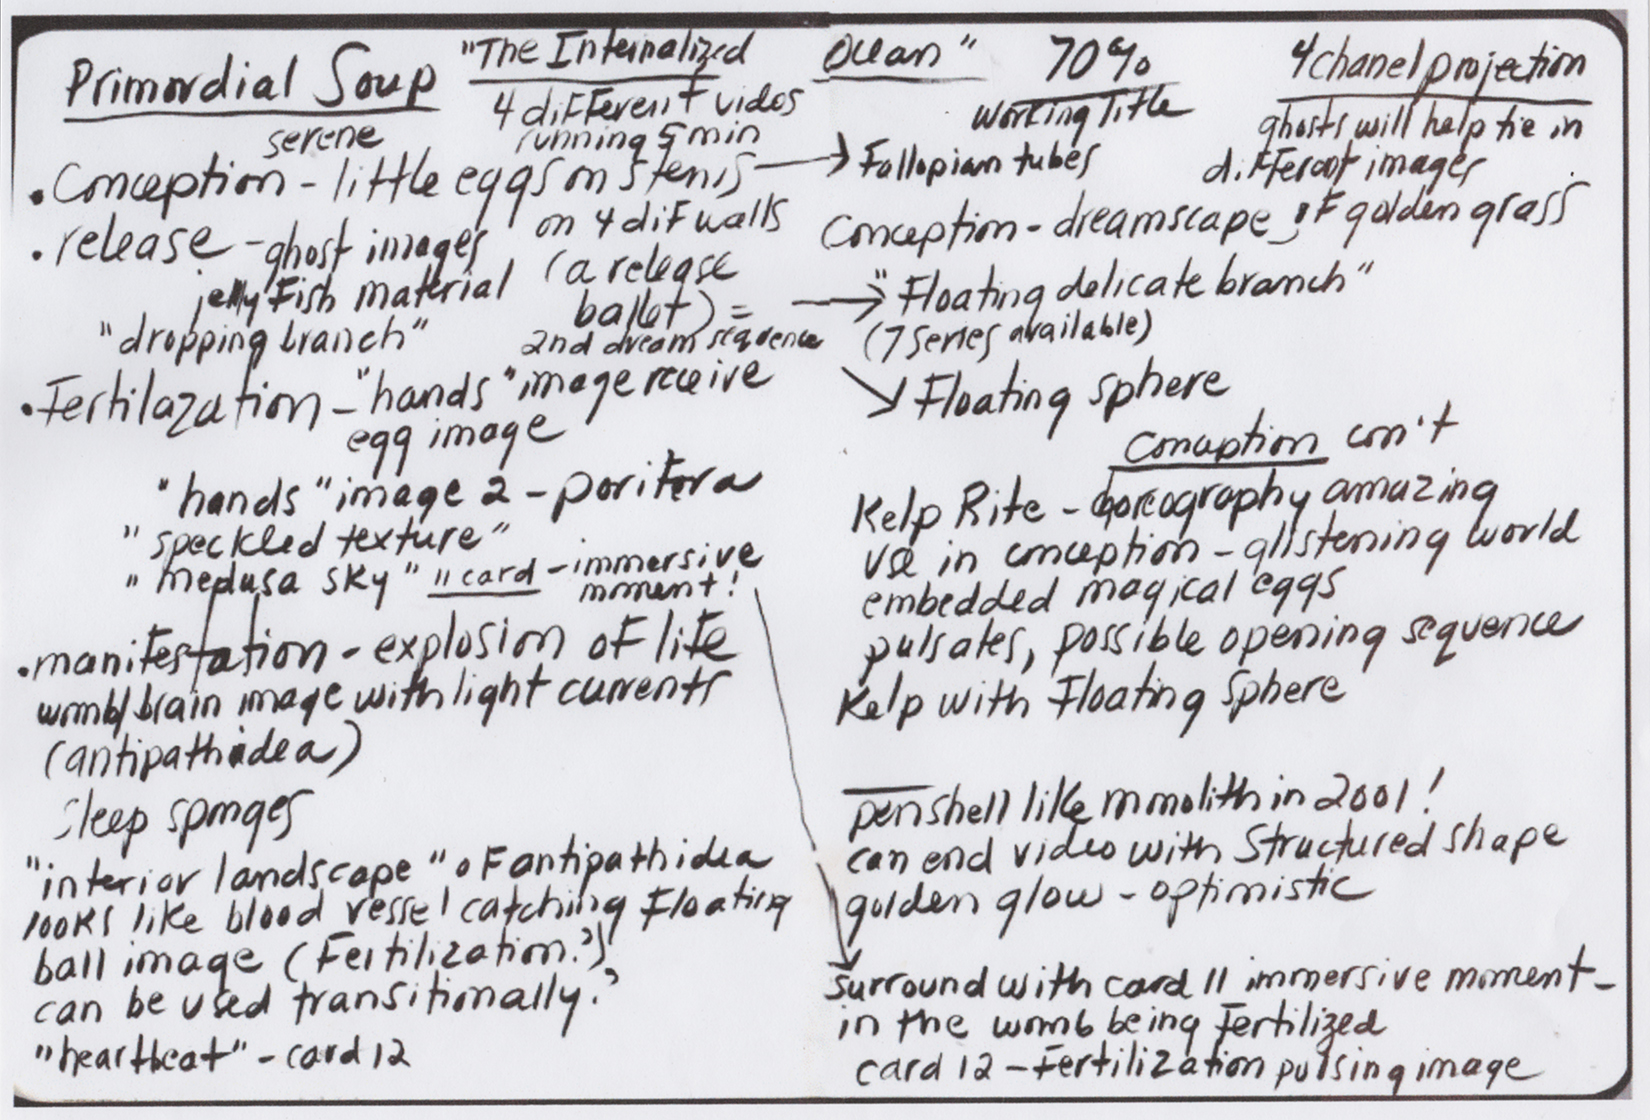 Primordial Soup "The Internalized Ocean" 70% 4 chanel projection
serene
4 different vidos
running 5 min
Working Title
ghosts will help tie in
different images
• Conception - little eggs on stems → Fallopian tubes
on 4 dif walls
• release - ghost images
jelly Fish material
"dropping branch"
(a release
ballet) =
2nd dream sequence
• Fertilazation - "hands" image receive
egg image
"hands" image 2 - porifera
"speckled texture"
"medusa sky" 11 card - immersive
moment!
• manifestation - explosion of life
womb/brain image with light currents
(antipathidea)
Sleep sponges
"interior landscape" of antipathidea
looks like blood vessel catching Floating
ball image (Fertilization?)
can be used transitionally?
"heartbeat" - card 12
Conception - dreamscape of golden grass
→ "Floating delicate branch"
(7 series available)
↘ Floating sphere
Conception con't
Kelp Rite - choreography amazing
use in conception - glistening world
embedded magical eggs
pulsates, possible opening sequence
Kelp with Floating Sphere
penshell like monolith in 2001!
can end video with Structured shape
golden glow - optimistic
surround with card 11 immersive moment -
in the womb being Fertilized
card 12 - Fertilization pulsing image